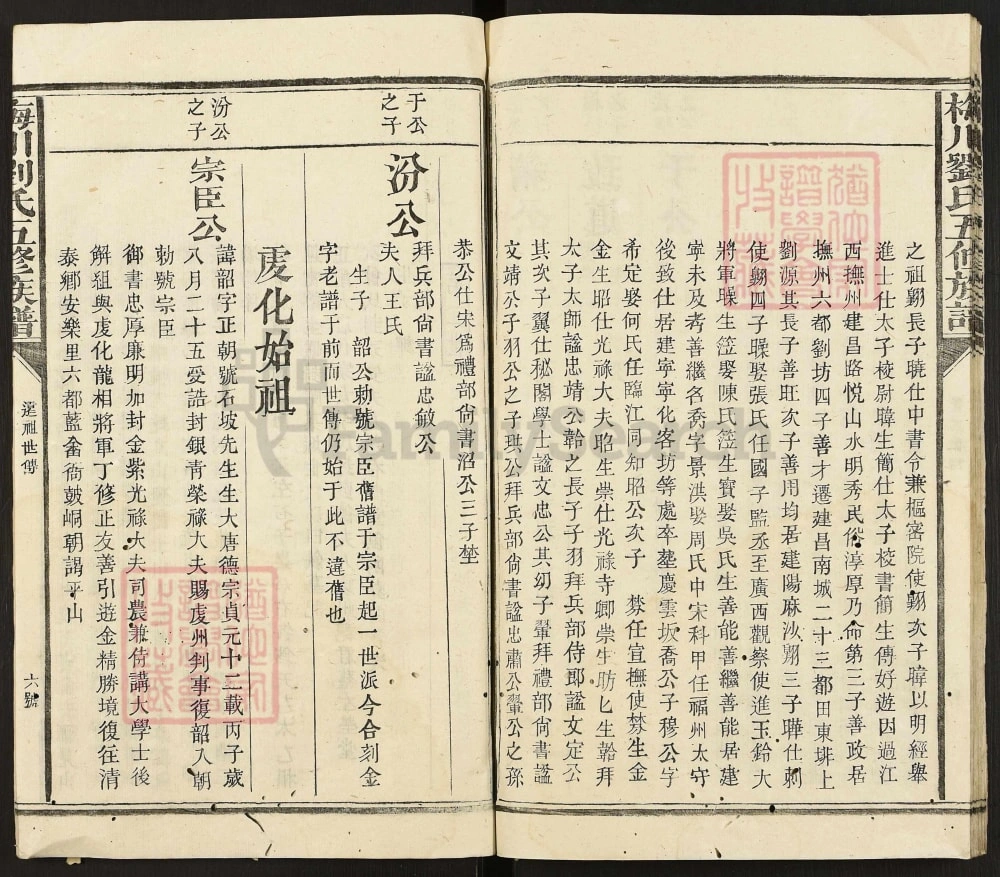 梅川劉氏五修族譜
之祖翺長子曉仕中書令兼樞密院使翺次子暐以明經舉
進士仕太子棱尉暐生簡仕太子校書簡生傳好遊因過江
西撫州建昌路悅山水明秀民俗淳厚乃命第三子善政居
撫州六都劉坊四子善才遷建昌南城二十三都田東排上
劉源其長子善旺次子善用均居建陽麻沙翺三子曄仕刺
使翺四子㬦娶張氏任國子監丞至廣西觀察使進玉鈴大
將軍㬦生䇓娶陳氏䇓生寶娶吳氏生善能善繼善能居建
寧未及考善繼名喬字景洪娶周氏中宋科甲任福州太守
後致仕居建寧寧化客坊等處卒塟慶雲坂喬公子穆公字
希定娶何氏任臨江同知昭公次子　棼任宣撫使棼生金
金生昭仕光祿大夫昭生崇仕光祿寺卿崇生昉匕生韐拜
太子太師謚忠靖公韐之長子子羽拜兵部侍郎謚文定公
其次子翼仕秘閣學士謚文忠公其幼子翬拜禮部尙書謚
文靖公子羽公之子珙公拜兵部尙書謚忠肅公翬公之孫
恭公仕宋爲禮部尙書沼公三子埜
于公
之子
汾公
拜兵部尙書謚忠敏公
夫人王氏
生子　韶公勅號宗臣舊譜于宗臣起一世派今合刻金
字老譜于前而世傳仍始于此不違舊也
虔化始祖
汾公
之子
宗臣公
諱韶字正朝號石坡先生生大唐德宗貞元十二載丙子歲
八月二十五受誥封銀青榮祿大夫賜虔州判事復韶入朝
勅號宗臣
御書忠厚廉明加封金紫光祿大夫司農兼侍講大學士後
解組與虔化龍相將軍丁修正友善引遊金精勝境復徃清
泰鄉安樂里六都藍畲崙鼓峒朝謁平山
梅川劉氏五修族譜
逕祖世傳
六號
FamilySearch